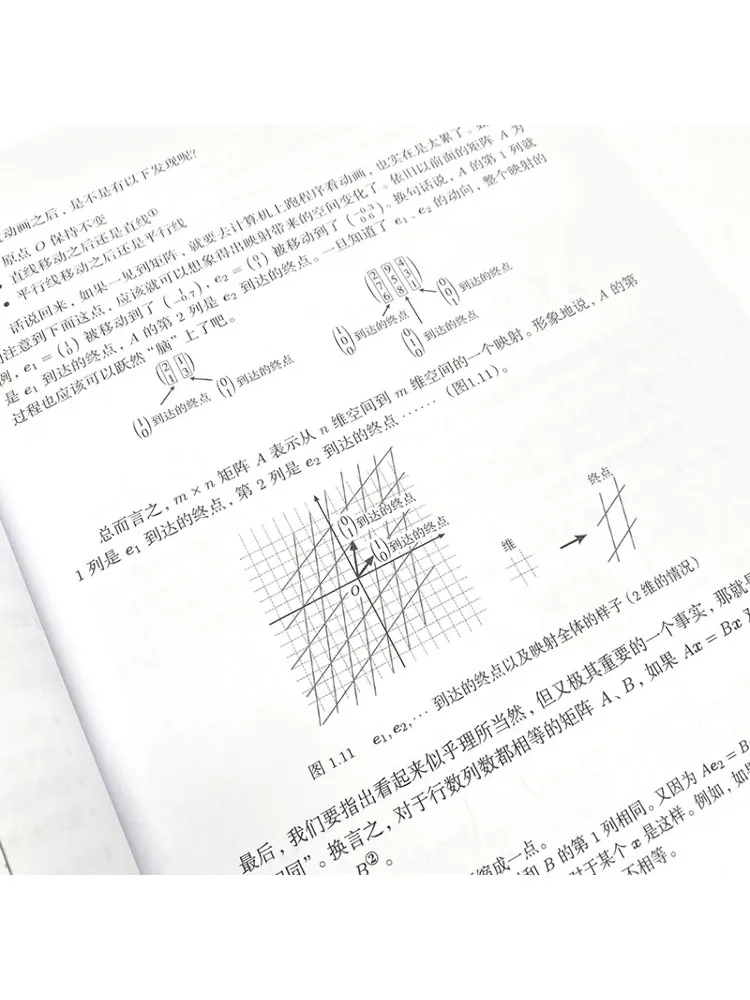 动画之后，是不是有以下发现呢？
原点 O 保持不变
• 直线移动之后还是直线①
• 平行线移动之后还是平行线
话说回来，如果一见到矩阵，就要去计算机上跑程序看动画，也实在是太累了。
注意到下面这点，应该就可以想象得出映射带来的空间变化了。依旧以前面的矩阵 A 为
例，e₁ = (1 0) 被移动到了 ( -0.7)，e₂ = (0 1) 被移动到了 (-0.3 0.6)。换句话说，A 的第 1 列就
是 e₁ 到达的终点，A 的第 2 列是 e₂ 到达的终点。一旦知道了 e₁、e₂ 的动向，整个映射的
过程也应该可以跃然“脑”上了吧。
(2 1 1 3)
(1 0) 到达的终点 (0 1) 到达的终点
(2 9 4 7 5 3 6 8 1)
(1 0 0) 到达的终点 (0 0 1) 到达的终点
(0 1 0) 到达的终点
总而言之，m × n 矩阵 A 表示从 n 维空间到 m 维空间的一个映射。形象地说，A 的第
1 列是 e₁ 到达的终点，第 2 列是 e₂ 到达的终点……（图1.11）。
(0 1) 到达的终点
(1 0) 到达的终点
O
维
终点
图 1.11 e₁,e₂,… 到达的终点以及映射全体的样子（2 维的情况）
最后，我们要指出看起来似乎理所当然，但又极其重要的一个事实，那就是
同”。换言之，对于行数列数都相等的矩阵 A、B，如果 Ax = Bx
B②。
缩成一点。
和 B 的第 1 列相同。又因为 Ae₂ = B
对于某个 x 是这样。例如，如果
不相等。